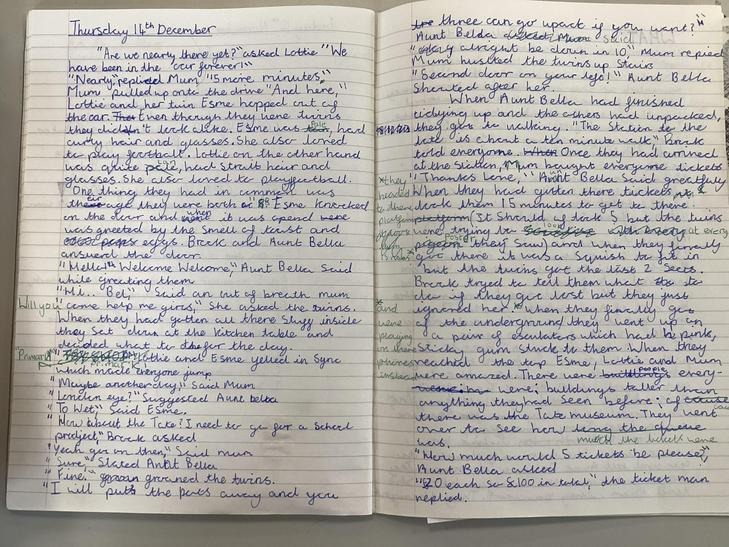 Thursday 14th December
"Are we nearly there yet?" asked Lottie "We
have been in the car forever!"
"Nearly," replied Mum "5 more minutes,"
Mum pulled up onto the drive "And here,"
Lottie and her twin Esme hopped out of
the car. Even though they were twins
they didn't look alike. Esme was had
curly hair and glasses. She also loved
to play football. Lottie on the other hand
was quite had strait hair and
glasses. She also loved to play
One thing they had in common was
age they were both Esme knocked
on the door and when it was opend
was greeted by the smell of toast and
eggs. Brock and Aunt Bella
answerd the door.
"Hello! Welcome Welcome," Aunt Bella Said
while greeting them
"Hi.. Bel," Said an out of breath mum
Will you
"come help me girls," She asked the twins.
When they had gotten all there Stuff inside
they Sat down at the kitchen table and
decided what to do for the day
"Primark"
Lottie and Esme yelled in Sync
which made everyone jump
"Maybe another day," Said Mum
"London eye?" Suggested Aunt bella
"To Wet," Said Esme.
"How about the Tate? I need to go for a School
project," Brock asked
"Yeah go on then," Said mum
"Sure," Stated Aunt Bella
"Fine," groaned the twins.
"I will put the pets away and you
three can go upack if you want?"
Aunt Bella Said
"Okay alright be down in 10," Mum repied
Mum hustled the twins up Stairs
"Second door on your left!" Aunt Bella
Shouted after her.
When Aunt Bella had finished
tidying up and the others had unpacked,
they got to walking. "The Station to the
tate is about a ten minute walk," Brock
told everyone. Once they had
at the Station, Mum baught everyone tickets
"Thanks Love," Aunt Bella Said greatfully
When they had gotten there tickets it
took them 15 minutes to get to there
platform (It Should of took 5 but the twins
were trying to at every
they saw) and when they finally
got there it was a Squish to fit in
but the twins got the last 2 Seets.
Brock tried to tell them what to
do if they got lost but they just
ignored her * when they finally got
and were playing on there phones instead
of the underground they went up
a pair of esculators which had pink,
Sticky gum Stuck to them When they
reached the top Esme, Lottie and Mum
were amazed. There were people every-
were; buildings taller than
anything they had seen before; of
there was the Tate museum. They went
over to See how
was. much the tickets were
"How much would 5 tickets be please,"
Aunt Bella asked
"£20 each so £100 in total," the ticket man
replied.